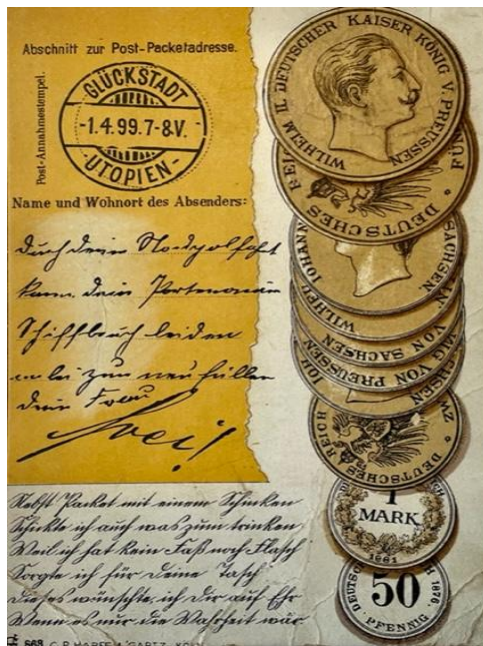 Abschnitt zur Post-Packetadresse.
Post-Annahmestempel.
GLÜCKSTADT
-1.4.99.7-8V.
-UTOPIEN-
Name und Wohnort des Absenders:
Durch deine Nordpolfahrt
kann dein Portemonnaie
Schiffbruch leiden
anbei zum neu füllen
dein Frau
Nebst Packet mit einem Schinken
Schickte ich auch was zum trinken
Weil ich hat kein Faß noch Flasch
Sorgte ich für Deine Tasch
Dieses wünschte ich Dir auf Ehr
Wenn es mir die Wahrheit wär.
WILHELM II DEUTSCHER KAISER KÖNIG V. PREUSSEN
DEUTSCHES REI
JOHANN
SACHSEN.
WILHE
VON SACHSEN
VON PREUSSEN
DEUTSCHES REICH
1
MARK
1881
50
PFENNIG
1876
668